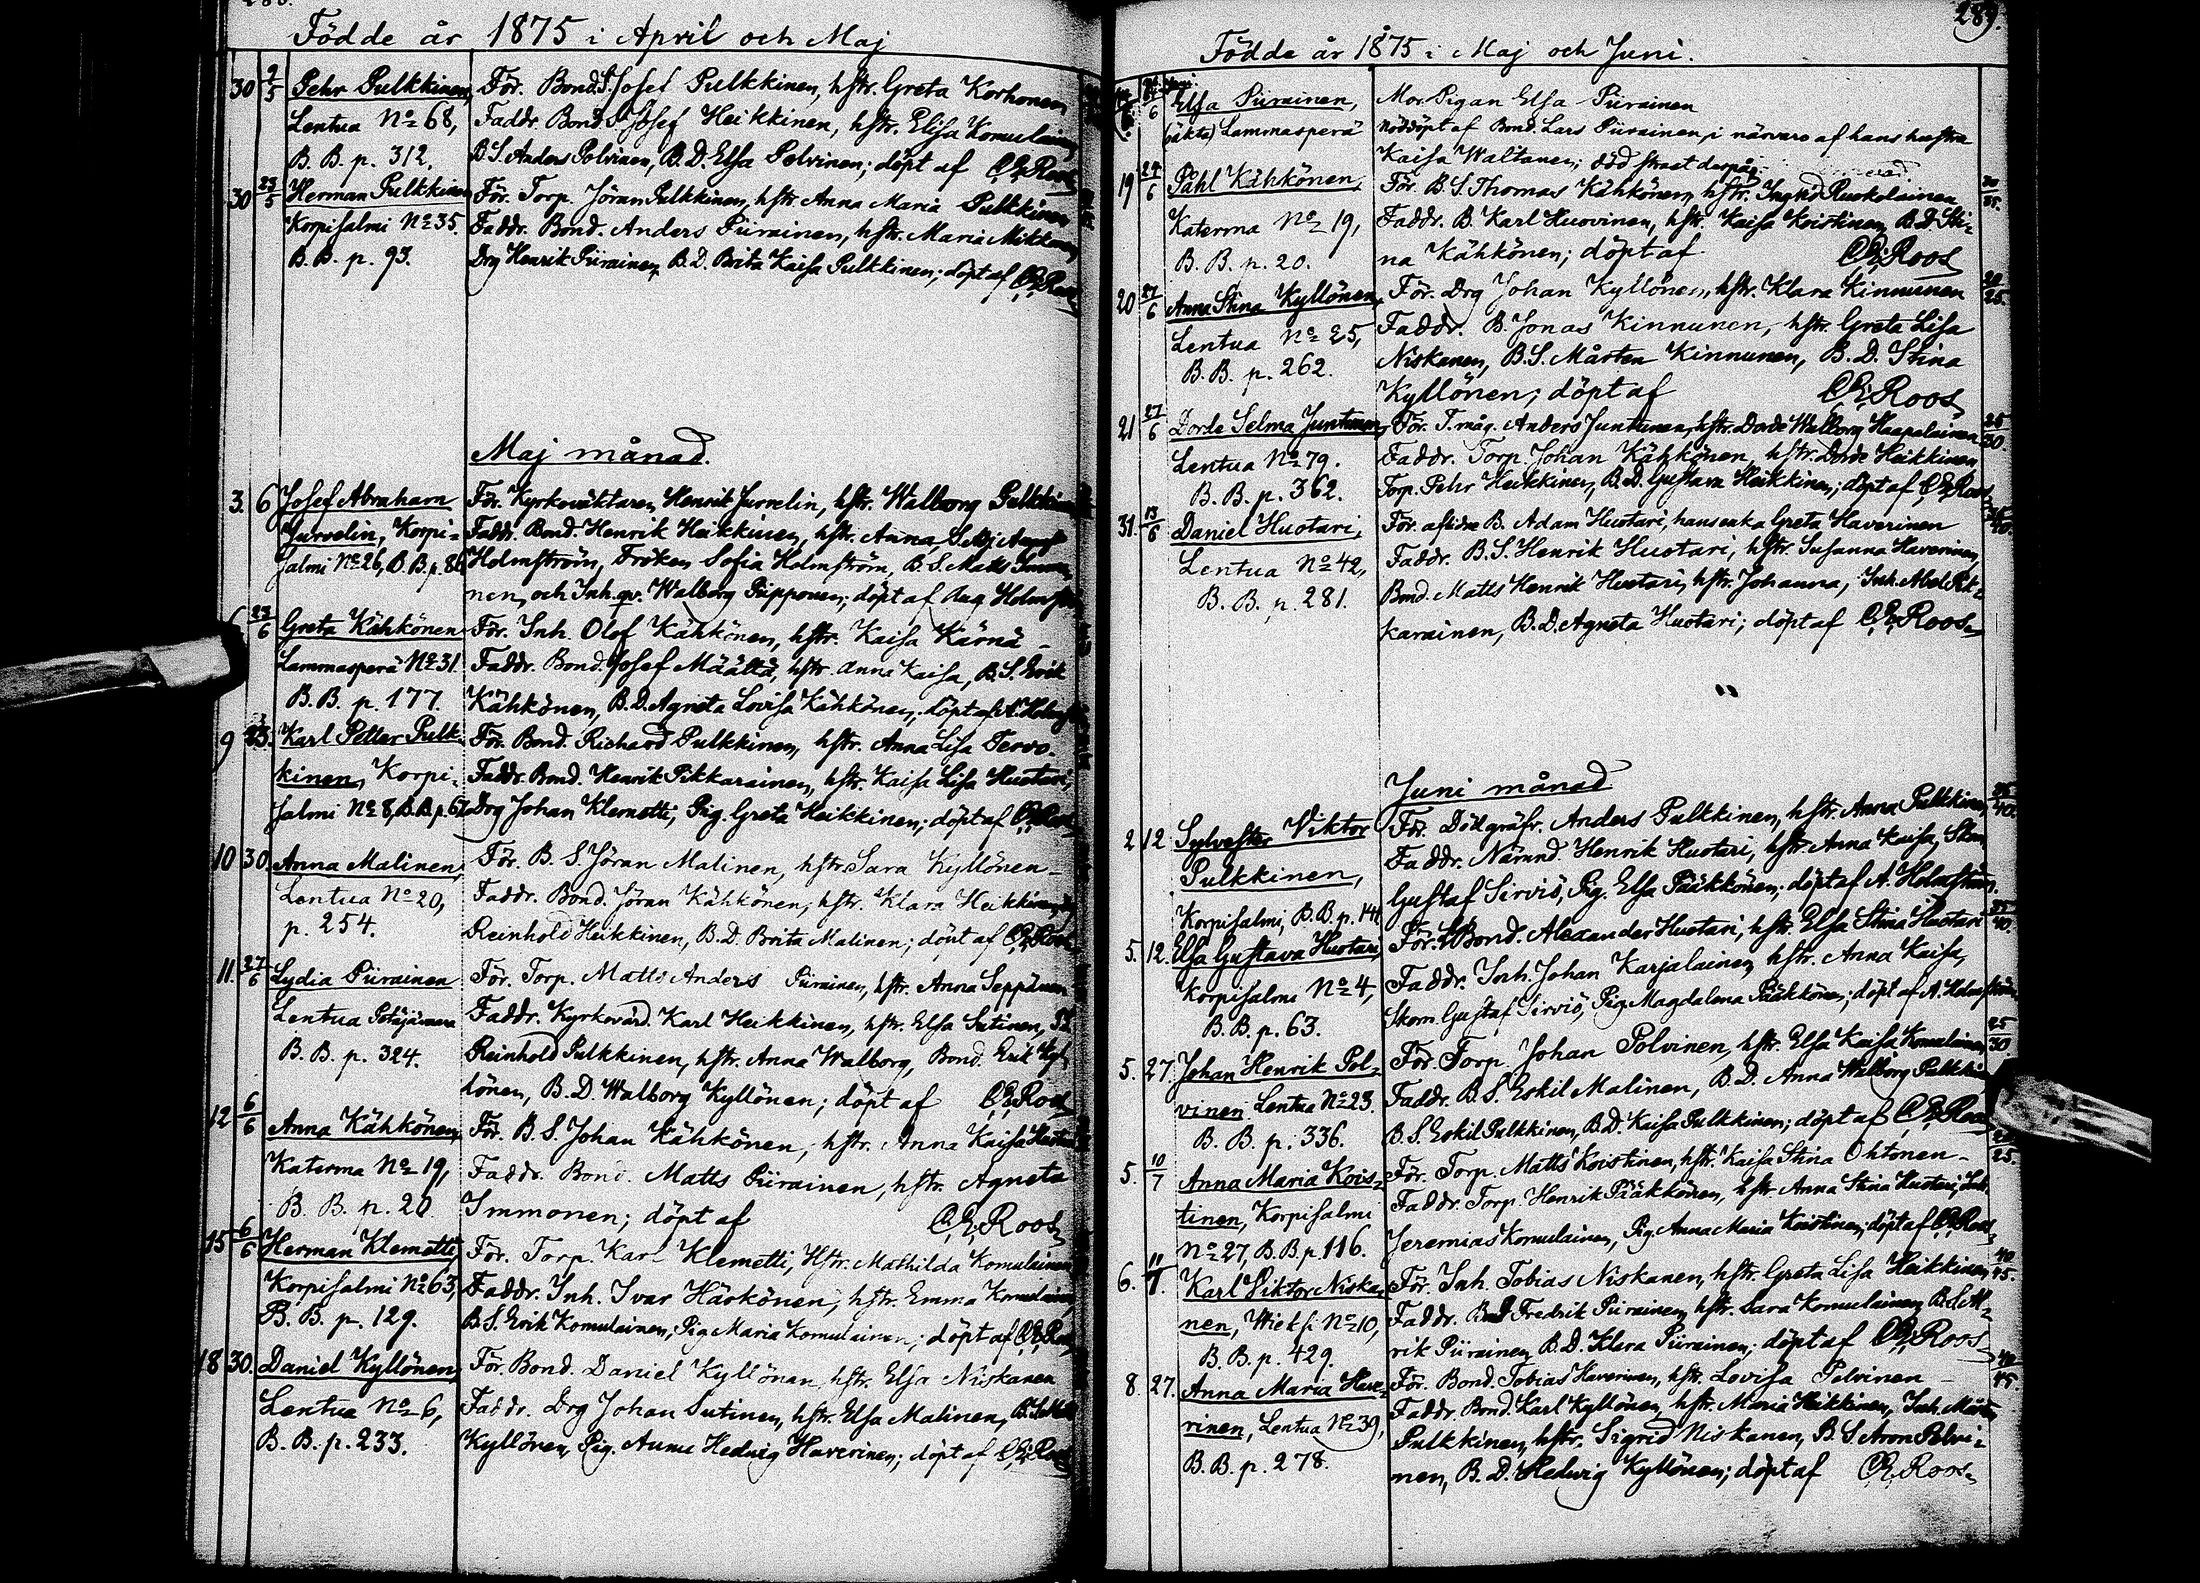 Födde år 1875 i April och Maj
30 9/5 Pehr Pulkkinen, För. Bond.S. Josef Pulkkinen, hstr. Greta Korhonen
Lentua No 68, Faddr. Bond.S. Josef Heikkinen, hstr. Elisa Komulainen
B. B. p. 312. B.S. Anders Polvinen, B.D. Elsa Polvinen; döpt af C.E. Roos
30 23/5 Herman Pulkkinen För. Torp. Jöran Pulkkinen, hstr. Anna Maria Pulkkinen
Korpisalmi No 35. Faddr. Bond. Anders Piirainen, hstr. Maria Mikkonen,
B. B. p. 93. Drg Henrik Piirainen, B.D. Brita Kaisa Pulkkinen; döpt af C.E. Roos
Maj månad.
3. 6 Josef Abraham För. Kyrkoväktaren Henrik Jurvelin, hstr. Walborg Pulkkinen
Jurvelin, Korpi- Faddr. Bond. Henrik Heikkinen, hstr. Anna,
salmi No 26, B.B.p. 86 Holmström, Fröken Sofia Holmström, B.S. Matts
nen, och Inh. qv. Walborg Piipponen; döpt af Aug Holmström
6 23/6 Greta Kähkönen För. Inh. Olof Kähkönen, hstr. Kaisa Kärnä –
Lammasperä No 31. Faddr. Bond. Josef Määttä, hstr. Anna Kaisa, B.S. Erik
B. B. p. 177. Kähkönen, B.D. Agneta Lovisa Kähkönen; döpt af A. Holmström
9 23. Karl Petter Pulk- För. Bond. Richard Pulkkinen, hstr. Anna Lisa Tervo.
kinen, Korpi- Faddr. Bond. Henrik Pikkarainen, hstr. Kaisa Lisa Huotari,
salmi No 8, B.B.p. 67. Drg Johan Klemetti, Pig. Greta Heikkinen; döpt af C.E. Roos
10 30 Anna Malinen, För. B. S. Jöran Malinen, hstr. Sara Kyllönen –
Lentua No 20, Faddr. Bond. Jöran Kähkönen, hstr. Klara Heikkinen,
p. 254. Reinhold Heikkinen, B.D. Brita Malinen; döpt af C.E. Roos
11. 27/6 Lydia Piirainen För. Torp. Matts Anders Piirainen, hstr. Anna Seppänen
Lentua Faddr. Kyrkovärd. Karl Heikkinen, hstr. Elsa Sutinen,
B. B. p. 324. Reinhold Pulkkinen, hstr. Anna Walborg, Bond Erik Kyl-
lönen, B. D. Walborg Kyllönen; döpt af C.E. Roos
12 6/6 Anna Kähkönen, För. B. S. Johan Kähkönen, hstr. Anna Kaisa Huotari
Katerma No 19, Faddr. Bond. Matts Piirainen, hstr. Agneta
B. B. p. 20 Immonen; döpt af C.E. Roos
15 6/6 Herman Klemetti, För. Torp. Karl Klemetti, Hstr. Mathilda Komulainen
Korpisalmi No 63, Faddr. Inh. Ivar Härkönen, hstr. Emma Komulainen,
B. B. p. 129. B.S. Erik Komulainen, Pig Maria Komulainen; döpt af C.E. Roos
18 30. Daniel Kyllönen, För. Bond. Daniel Kyllönen, hstr. Elsa Niskanen
Lentua No 6, Faddr. Drg Johan Sutinen, hstr. Elsa Malinen,
B. B. p. 233. Kyllönen, Pig. Anna Hedvig Haverinen; döpt af C.E. Roos
289.
Födda år 1875 i Maj och Juni.
Elsa Piirainen, Mor. Pigan Elsa Piirainen
(oäkta) Lammasperä nöddöpt af Bond. Lars Piirainen, i närvaro af hans hustru
Kaisa Waltanen; död straxt derpå.
19 24/6 Påhl Kähkönen, För. B.S. Thomas Kähkönen, hstr. Ingrid Ruokolainen
Katerma No 19, Faddr. B. Karl Huovinen, hstr. Kaisa Koistinen, B.D. Sti-
B. B. p. 20. na Kähkönen; döpt af C.E. Roos
20 27/6 Anna Stina Kyllönen, För. Drg Johan Kyllönen, hstr. Klara Kinnunen
Lentua No 25, Faddr. B. Jonas Kinnunen, hstr. Greta Lisa
B. B. p. 262. Niskanen, B.S. Mårten Kinnunen, B. D. Stina
Kyllönen; döpt af C.E. Roos
21 27/6 Dorde Selma Juntunen, För. T. måg. Anders Juntunen, hstr. Dorde Walborg Haapalainen
Lentua No 79. Faddr. Torp. Johan Kähkönen, hstr. Dorde Heikkinen,
B. B. p. 362. Torp. Pehr Heikkinen, B.D. Gustava Heikkinen; döpt af C.E. Roos
31. 13/6 Daniel Huotari, För. aflidne B. Adam Huotari, hans enka Greta Haverinen
Lentua No 42, Faddr. B.S. Henrik Huotari, hstr. Susanna Haverinen,
B. B. p. 281. Bond. Matts Henrik Huotari, hstr. Johanna, Inh. Abel Pik-
karainen, B.D. Agneta Huotari; döpt af C.E. Roos
Juni månad
2 12. Sylvester Viktor För. Dödgräfv. Anders Pulkkinen, hstr. Anna Pulkkinen,
Pulkkinen, Faddr. Nämnd. Henrik Huotari, hstr. Anna Kaisa, Skom
Korpisalmi, B.B. p. 141 Gustaf Sirviö, Pig. Elsa Pääkkönen; döpt af A. Holmström.
5. 12. Elsa Gustava Huotari, För. Bond. Alexander Huotari, hstr. Elsa Stina Huotari
Korpisalmi No 4, Faddr. Inh. Johan Karjalainen, hstr. Anna Kaisa,
B. B. p. 63. Skom. Gustaf Sirviö, Pig. Magdalena Pääkkönen; döpt af A. Holmström
5. 27. Johan Henrik Pol- För Torp. Johan Polvinen, hstr. Elsa Kaisa Komulainen
vinen Lentua No 23. Faddr. B.S. Eskil Malinen, B.D. Anna Walborg Pulkkinen
B. B. p. 336. B.S. Eskil Pulkkinen, B.D. Kaisa Pulkkinen; döpt af C.E. Roos
5. 10/7 Anna Maria Kois- För. Torp. Matts Koistinen, hstr. Kaisa Stina Ohtonen –
tinen, Korpisalmi Faddr. Torp. Henrik Pääkkönen, hstr Anna Stina Huotari, Inh.
No 27, B.B. p. 116. Jeremias Komulainen, Pig. Anna Maria Koistinen; döpt af C.E. Roos
6. 11/7. Karl Viktor Niska- För. Inh. Tobias Niskanen, hstr. Greta Lisa Heikkinen
nen, Wieksi No 10, Faddr. Bond Fredrik Piirainen, hstr. Sara Komulainen,
B. B. p. 429. rik Piirainen, B.D. Klara Piirainen; döpt af C.E. Roos
8. 27. Anna Maria Have- För. Bond. Tobias Haverinen, hstr. Lovisa Polvinen –
rinen, Lentua No 39, Faddr. Bond. Karl Kyllönen, hstr. Maria Heikkinen, Inh. Mårten
Pulkkinen, hstr. Sigrid Niskanen, B.S. Aron Polvi-
B. B. p. 278. nen, B. D. Hedwig Kyllönen; döpt af C.E. Roos